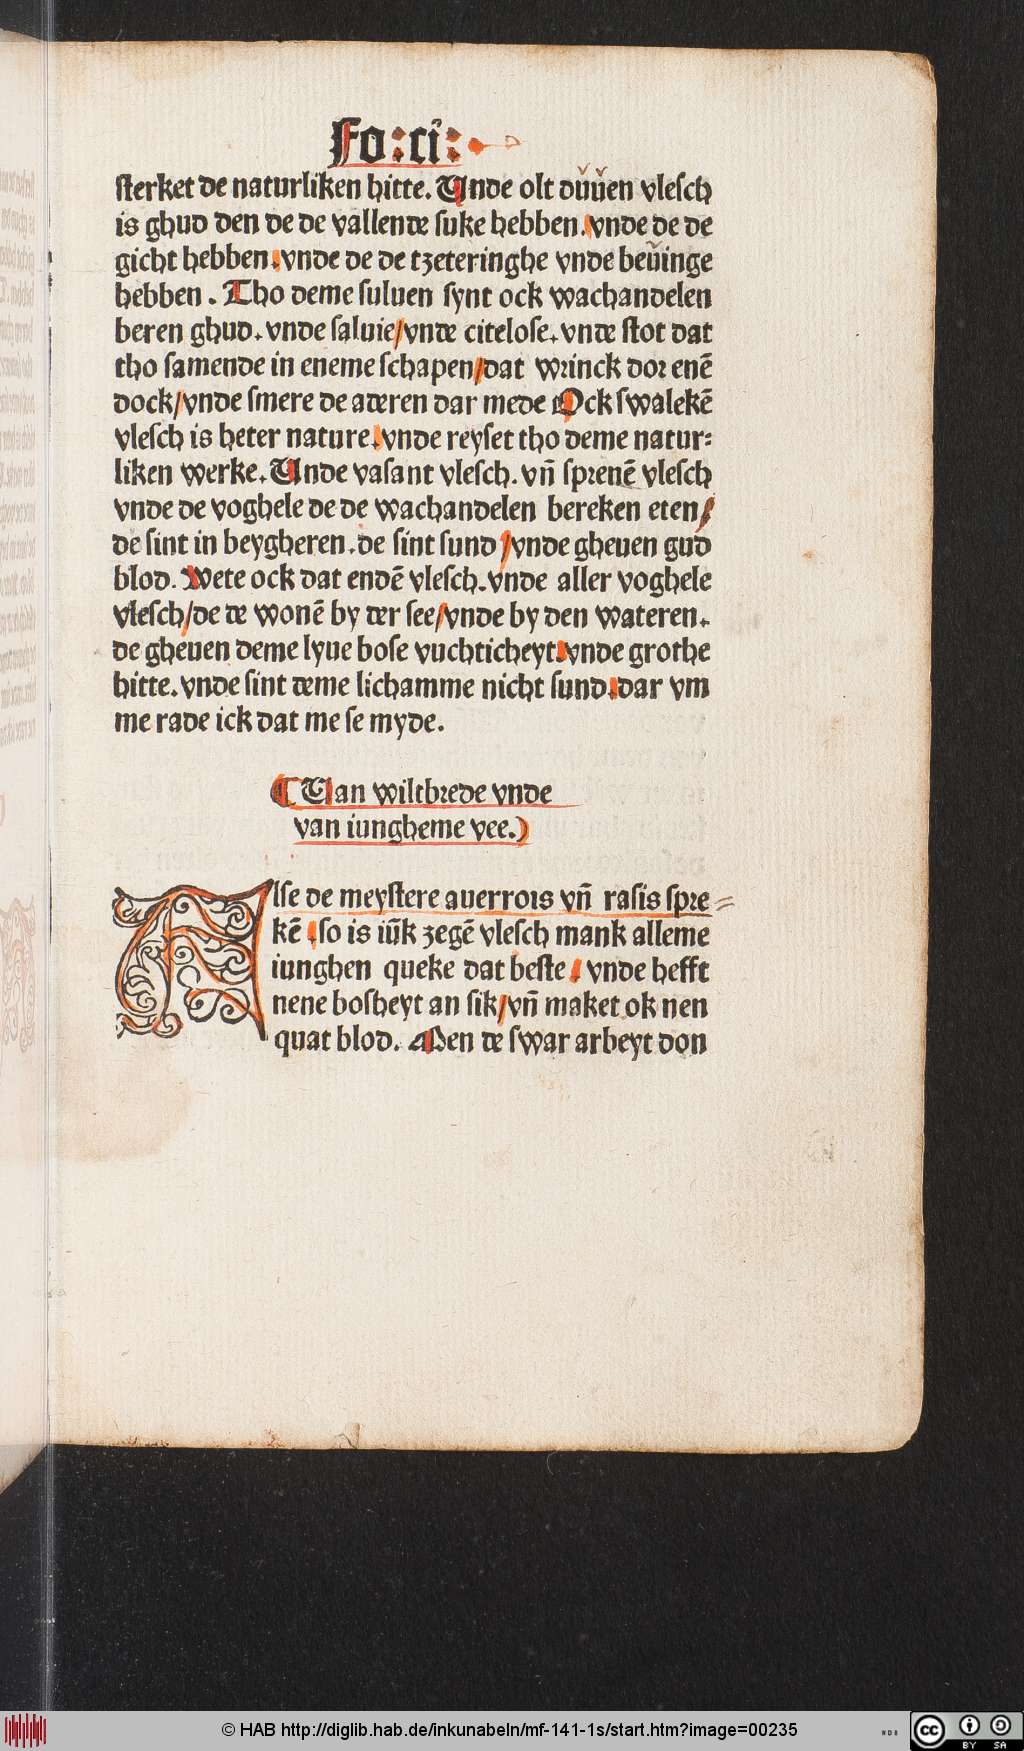 Fo: ci:
sterket de naturliken hitte. Unde olt duuen vlesch
is ghud den de de vallende suke hebben. vnde de de
gicht hebben. vnde de de tzeteringhe vnde beuinge
hebben. Tho deme suluen synt ock wachandelen
beren ghud. vnde saluie/vnde citelose. vnde stot dat
tho samende in eneme schapen/dat wrinck dor enē
dock/vnde smere de aderen dar mede Ock swalekē
vlesch is heter nature. vnde reyset tho deme natur⸗
liken werke. Unde vasant vlesch. vñ sprenē vlesch
vnde de voghele de de wachandelen bereken eten/
de sint in beygheren. de sint sund/vnde gheuen gud
blod. Wete ock dat endē vlesch. vnde aller voghele
vlesch/de de wonē by der see/vnde by den wateren.
de gheuen deme lyue bose vuchticheyt. vnde grothe
hitte. vnde sint deme lichamme nicht sund. dar vm
me rade ick dat me se myde.
¶ Uan wiltbrede vnde
van iungheme vee.)
Alse de meystere auerrois vñ rasis spre⸗
kē. so is iūk zegē vlesch mank alleme
iunghen queke dat beste. vnde hefft
nene bosheyt an sik/vñ maket ok nen
quat blod. Men de swar arbeyt don
© HAB http://diglib.hab.de/inkunabeln/mf-141-1s/start.htm?image=00235
cc BY SA